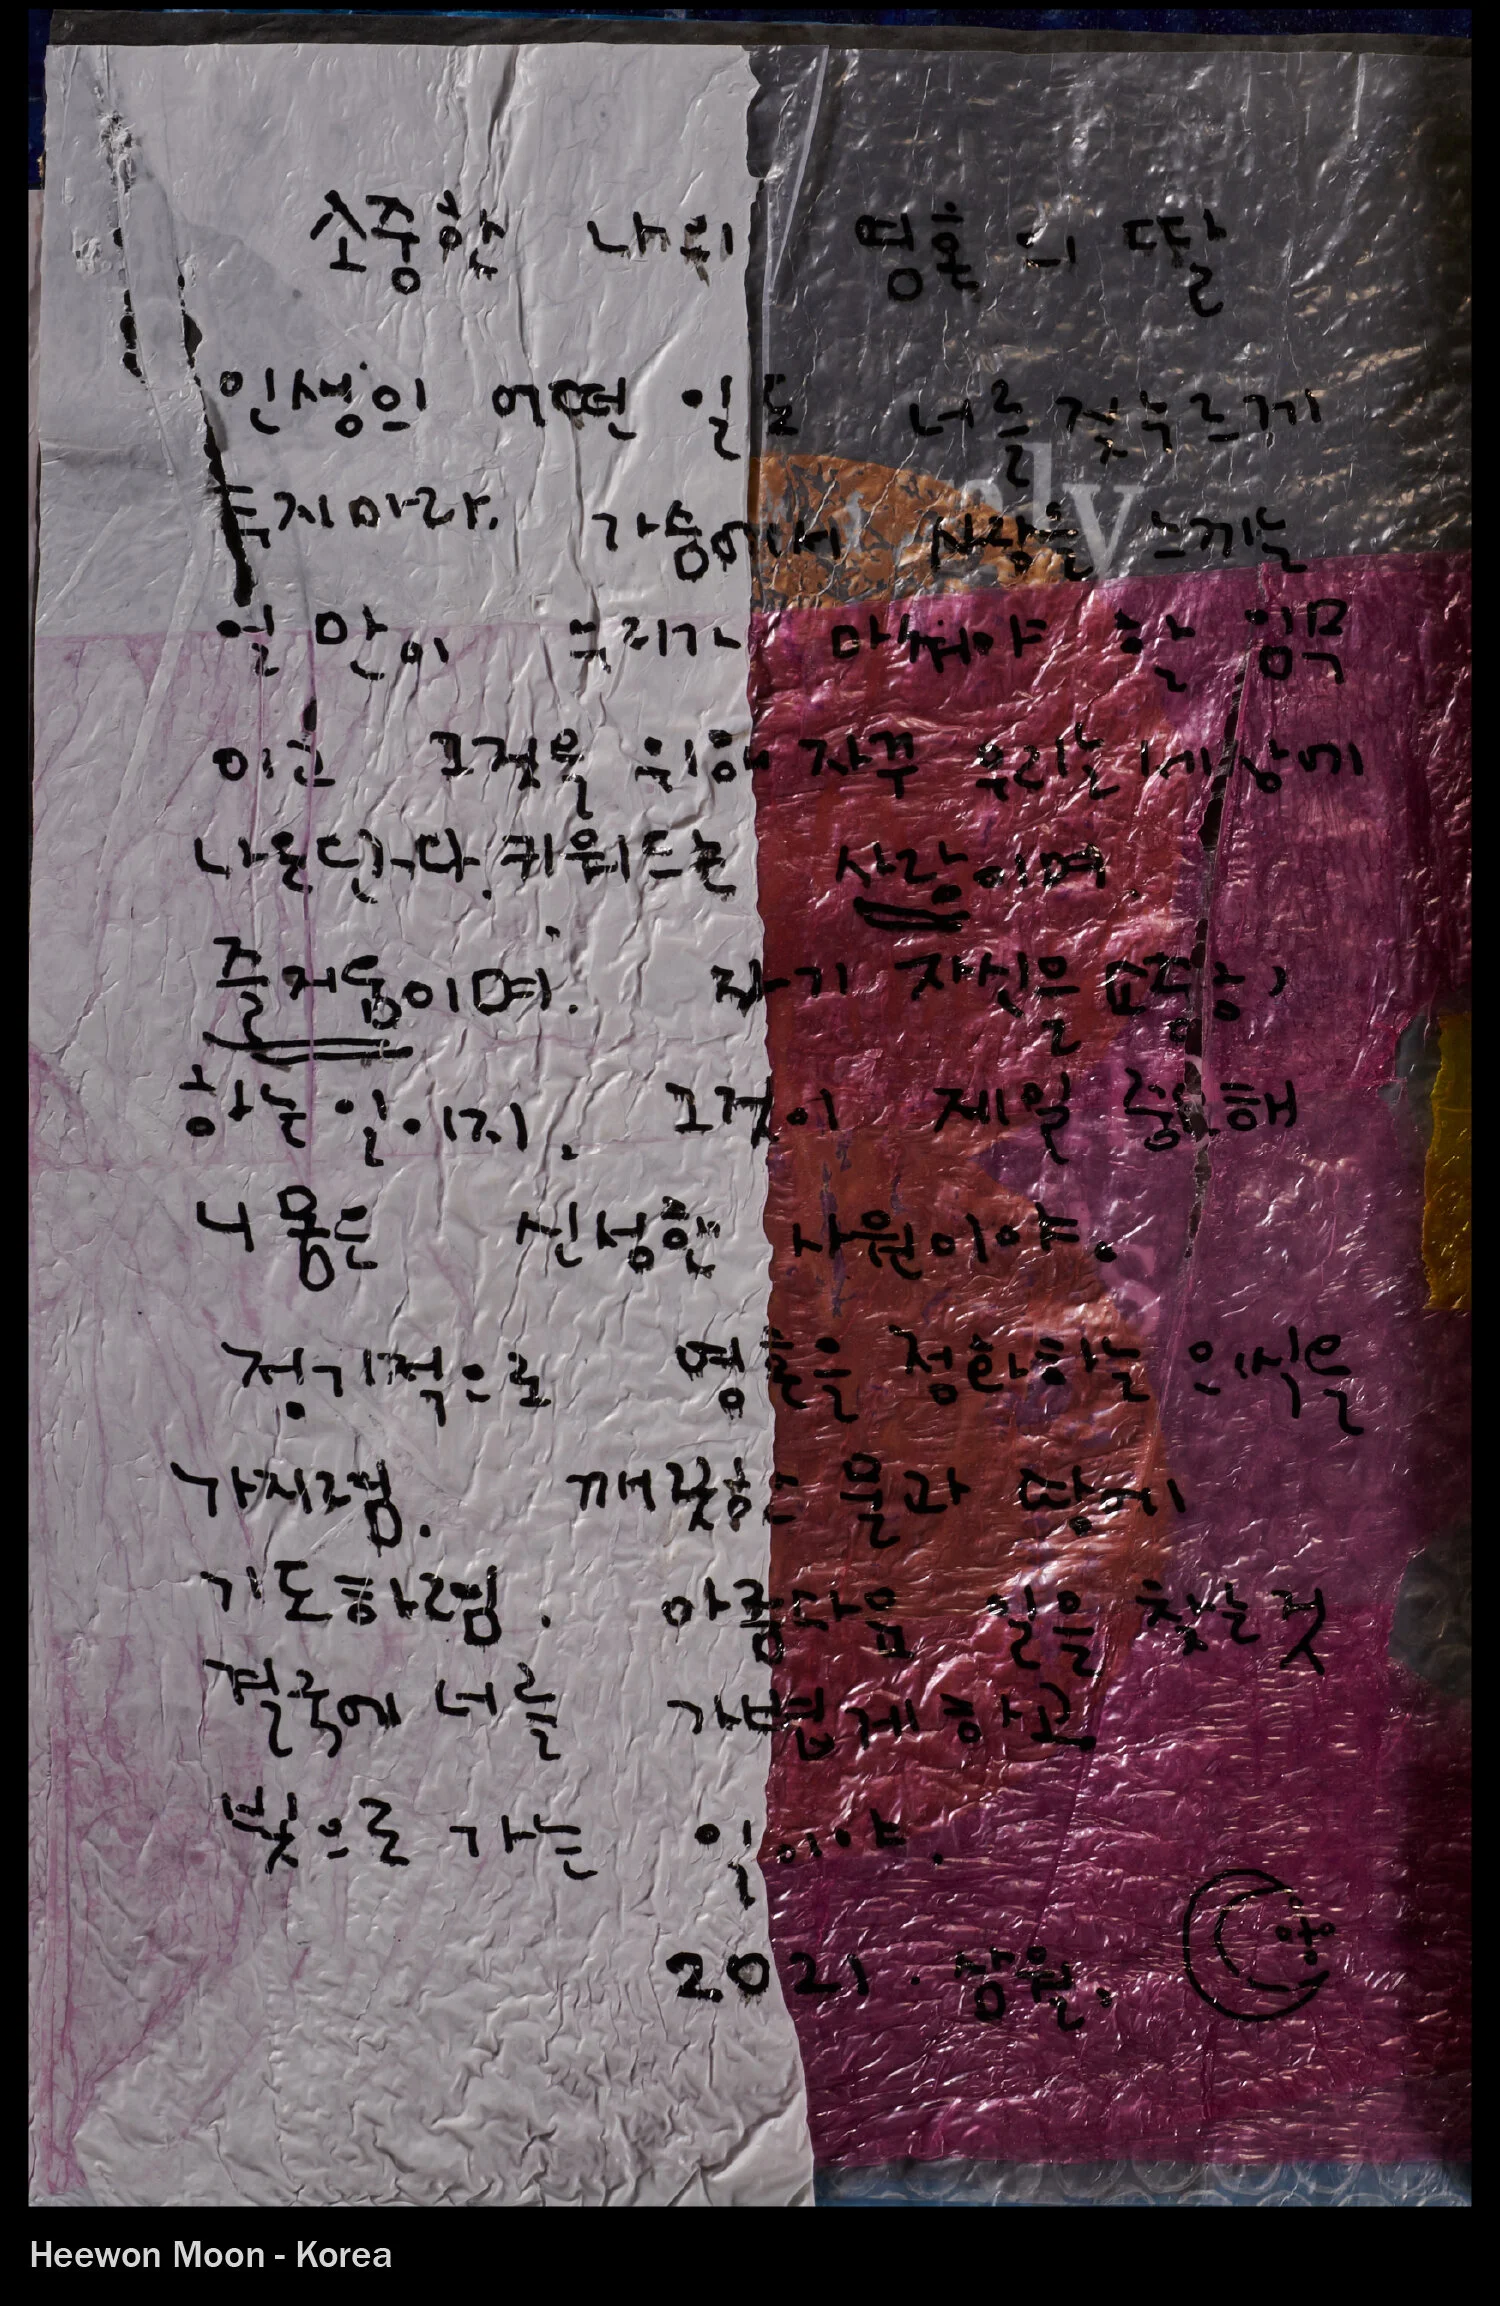 소중한 내의 영혼의 딸
인생의 어떤 일도 너를 짓누르게
두지마라. 가슴에서 사랑을 느끼는
일만이 우리가 마쳐야 할 임무
이고 그것을 위해 자꾸 우리는 세상에
나온단다. 키워드는 사랑이며.
즐거움이며. 자기 자신을 소중히
하는 일이지. 그것이 제일 중요해
니 몸은 신성한 사원이야.
정기적으로 영혼을 정화하는 의식을
가지렴. 깨끗한 물과 땅에
기도하렴. 아름다움 일을 찾는것
결국에 너를 가볍게 하고
빛으로 가는 일이야.
2021.
ely
Heewon Moon - Korea